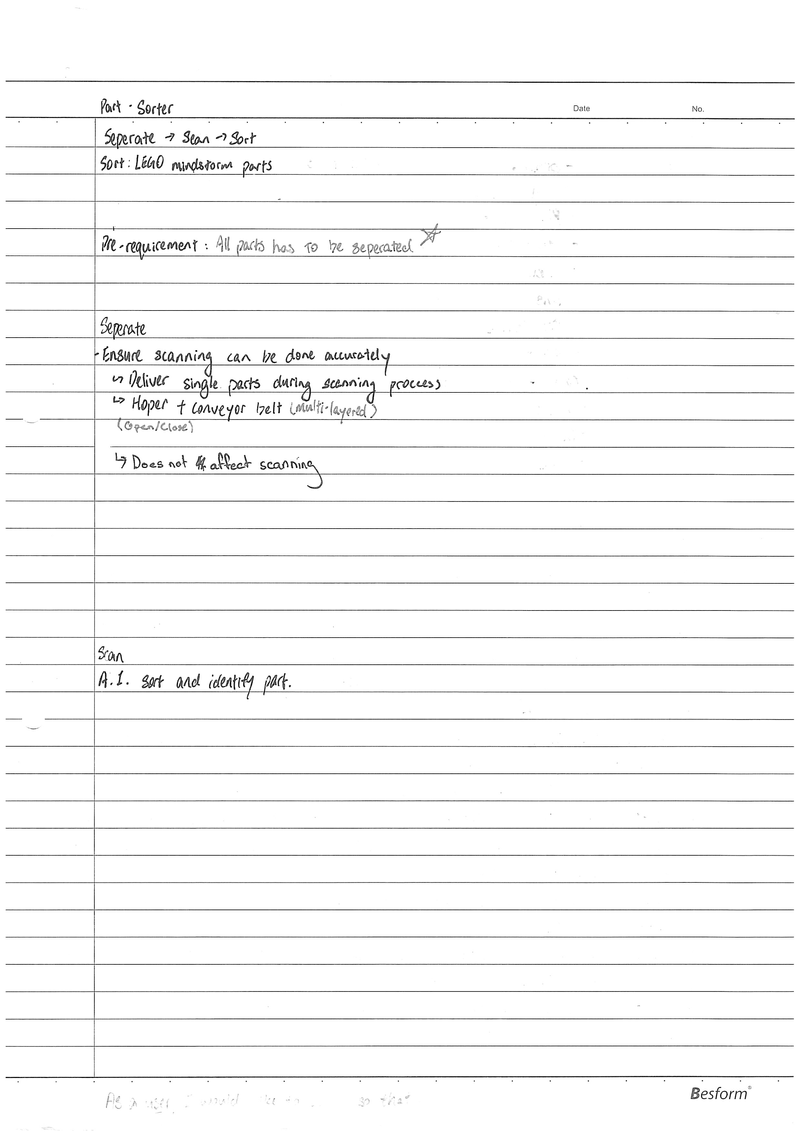 Part - Sorter
Date
No.
Seperate → Scan → Sort
Sort: LEGO mindstorm parts
Pre-requirement: All parts has to be seperated ☆
Seperate
- Ensure scanning can be done accurately
↳ Deliver single parts during scanning process
↳ Hoper + conveyor belt (Multi-layered)
(Open/Close)
↳ Does not affect scanning
Scan
A.I. sort and identify part.
Besform
so that